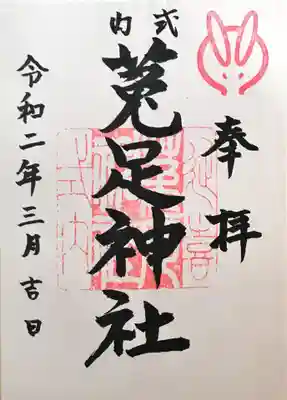 奉拝
式内
菟足神社
令和二年三月吉日